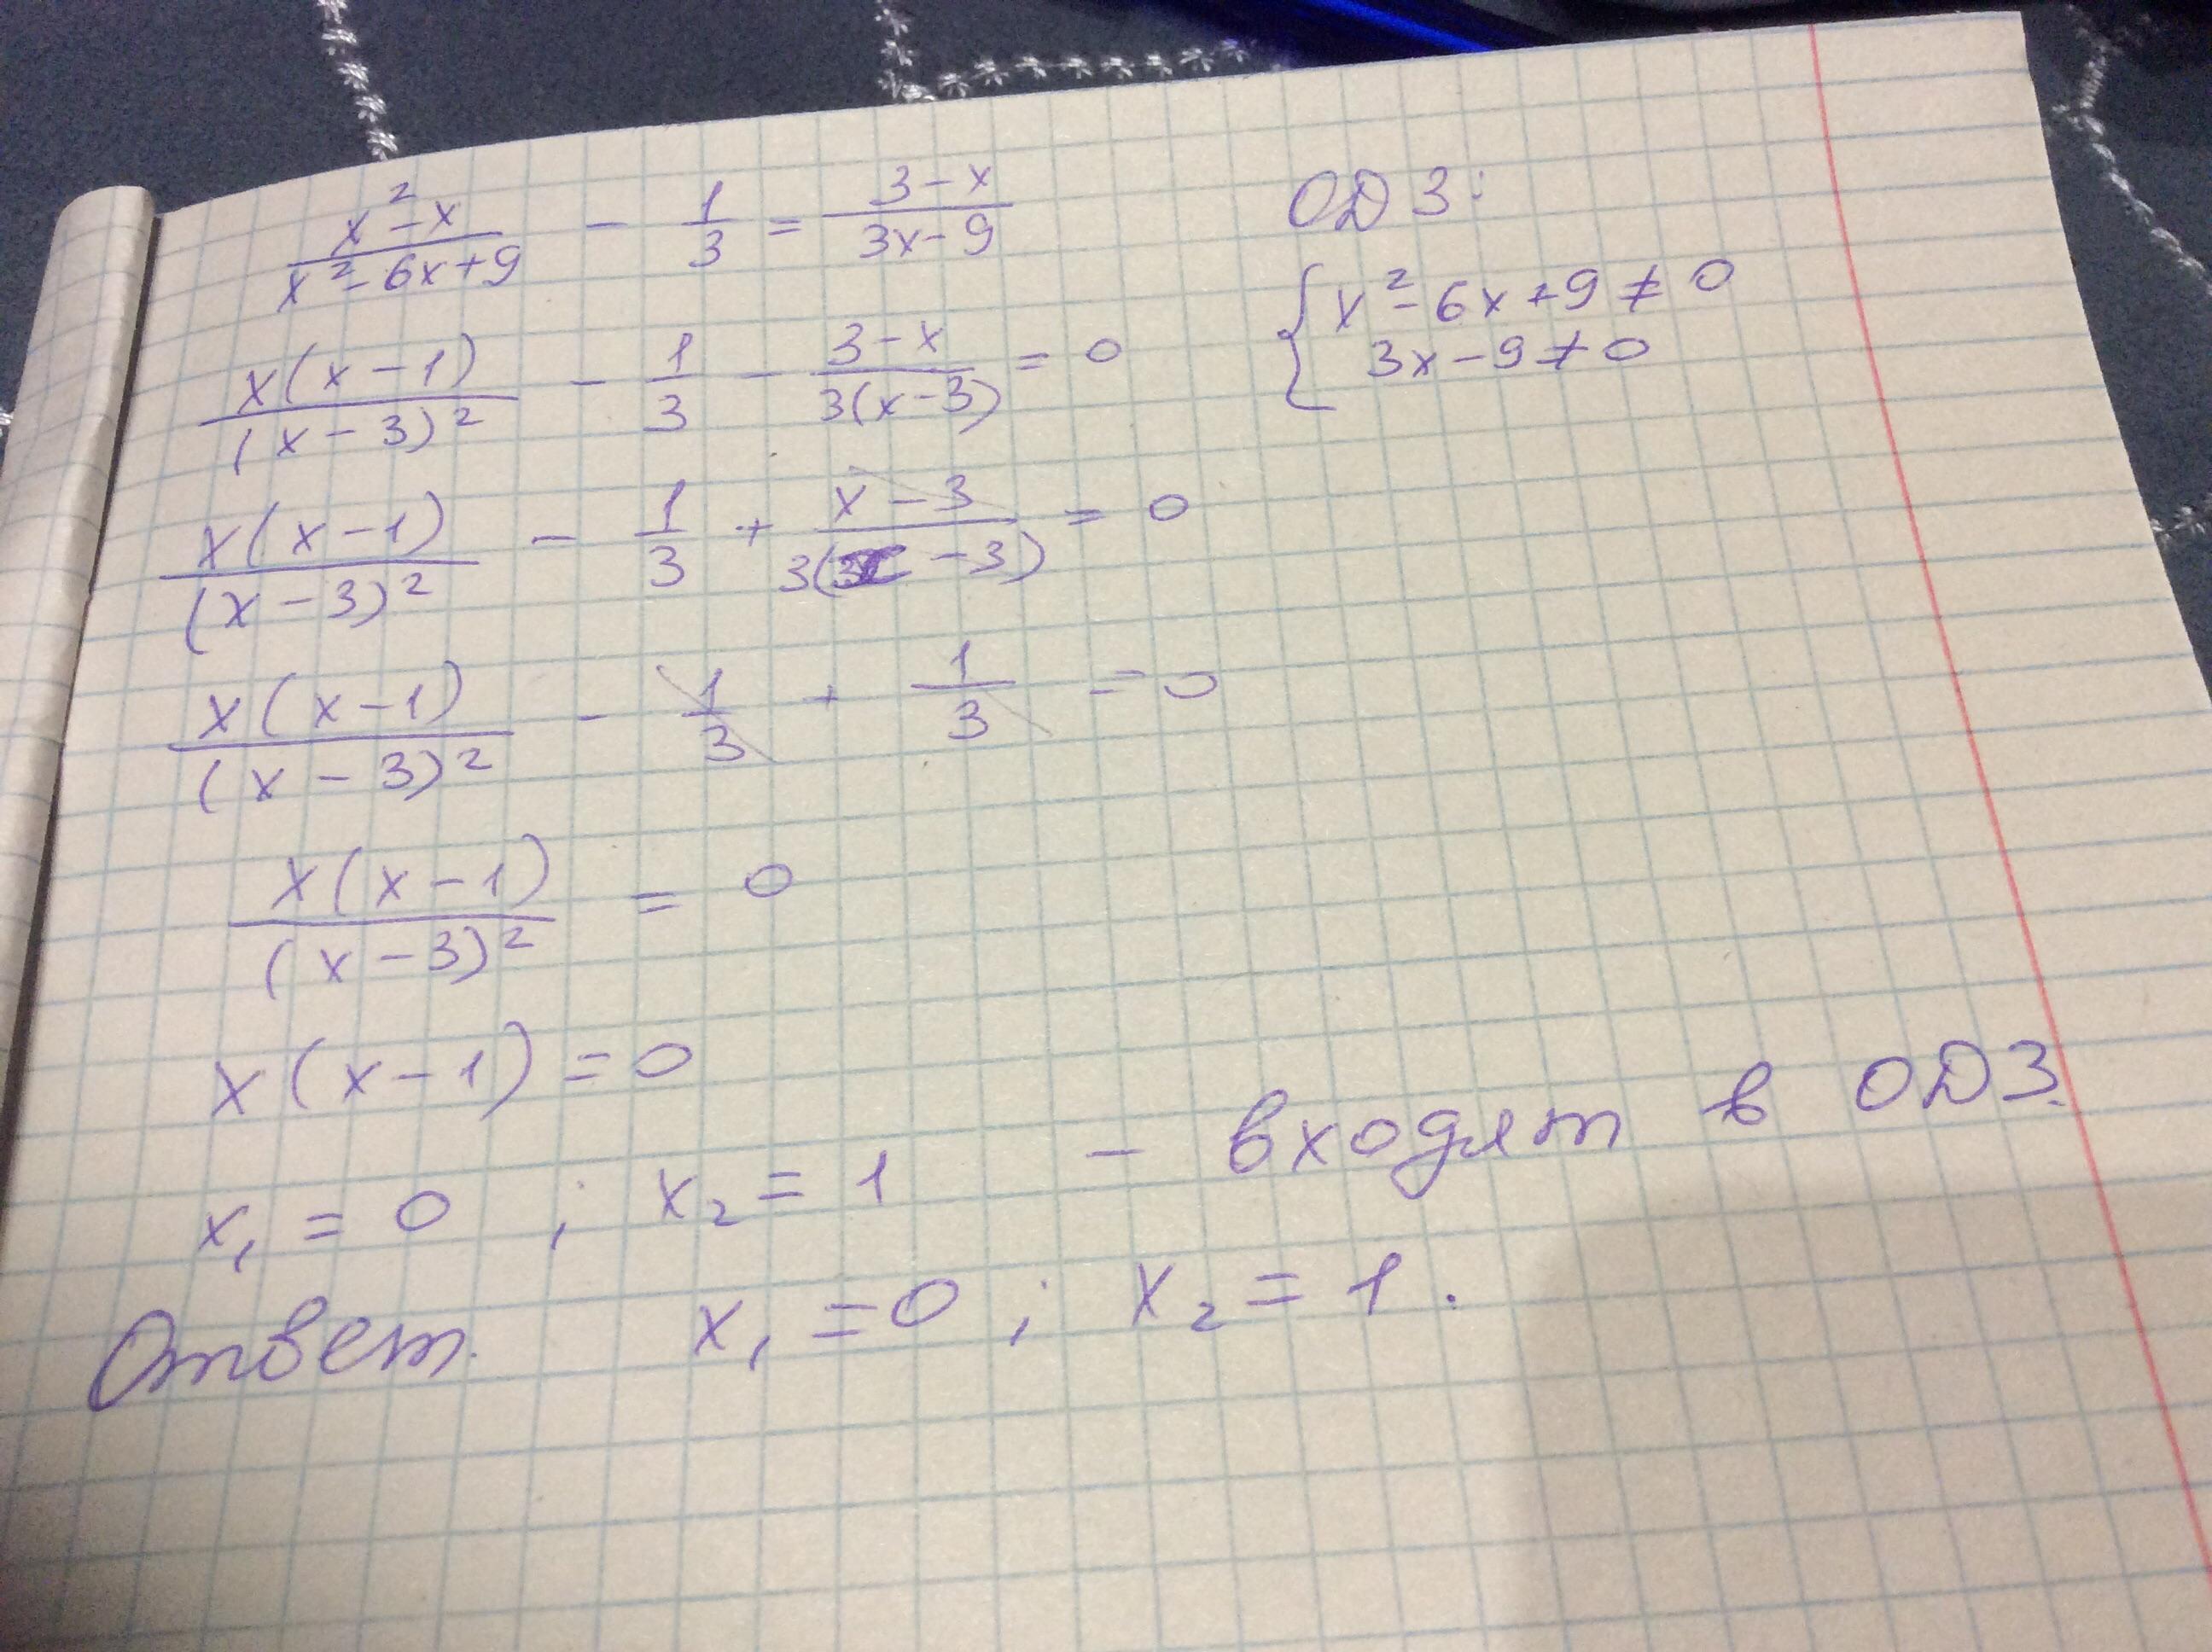 (x²-x)/(x²-6x+9) - 1/3 = (3-x)/(3x-9)
ОДЗ:
x²-6x+9≠0
3x-9≠0
x(x-1)/(x-3)² - 1/3 - (3-x)/3(x-3) = 0
x(x-1)/(x-3)² - 1/3 + (x-3)/3(x-3) = 0
x(x-1)/(x-3)² - 1/3 + 1/3 = 0
x(x-1)/(x-3)² = 0
x(x-1)=0
x₁ = 0 ; x₂ = 1 - входят в ОДЗ.
Ответ. x₁ = 0 ; x₂ = 1.